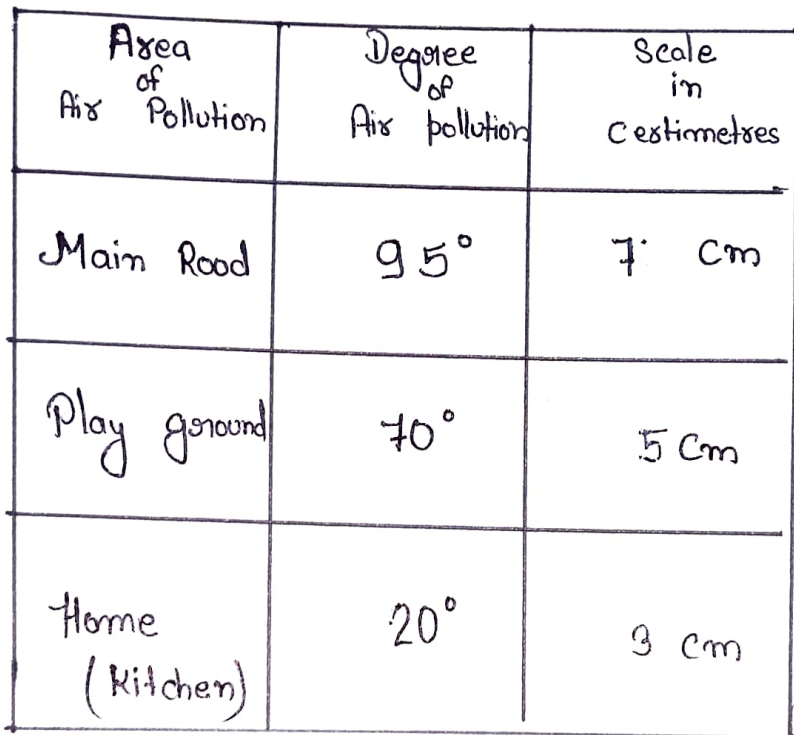 Area
of
Air Pollution
Degree
of
Air pollution
Scale
in
Cestimetres
Main Rood
95°
7 Cm
Play ground
70°
5 Cm
Home
(Kitchen)
20°
3 cm